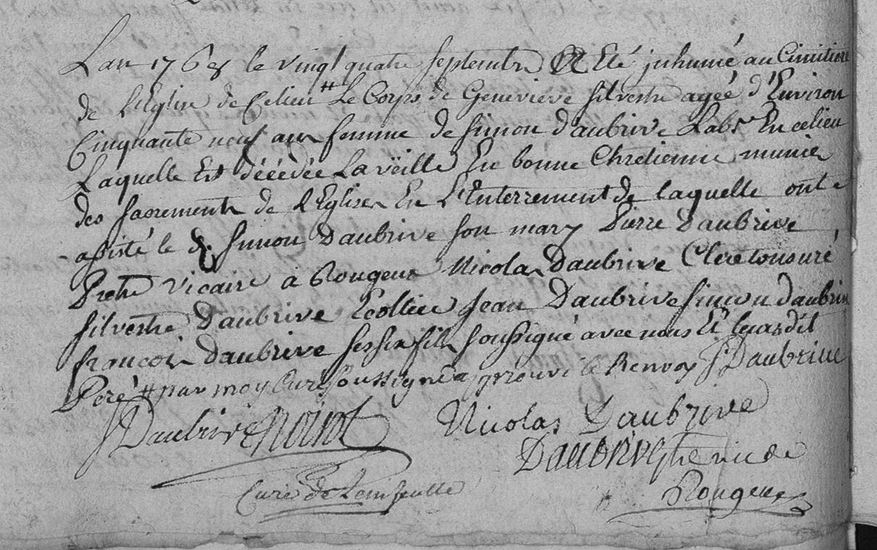 L'an 1768 le vingt quatre septembre A Eté inhumé au Cimitiere
de L'Eglise de Celieu # Le Corps de Geneviève Silvestre agée d'Environ
Cinquante neuf ans femme de Simon d'aubrive Labr En ce lieu
Laquelle Est décédée La veille En bonne Chrétienne munie
des sacrements de l'Eglise En L'Enterrement de laquelle ont
assisté le Sr Simon Daubrive son mary Pierre Daubrive
Pretre vicaire à Rougeux Nicolas Daubrive Clerc tonsuré
Silvestre Daubrive Ecollier Jean Daubrive Simon daubrive
françois Daubrive ses six fils soussigné avec nous Et leurs dit
Peré # par moy Curé soussigné approuvé le Renvoy S Daubrive
J Daubrive Noirot Nicolas Daubrive
Daubrive vic de
Curé de Rougeux